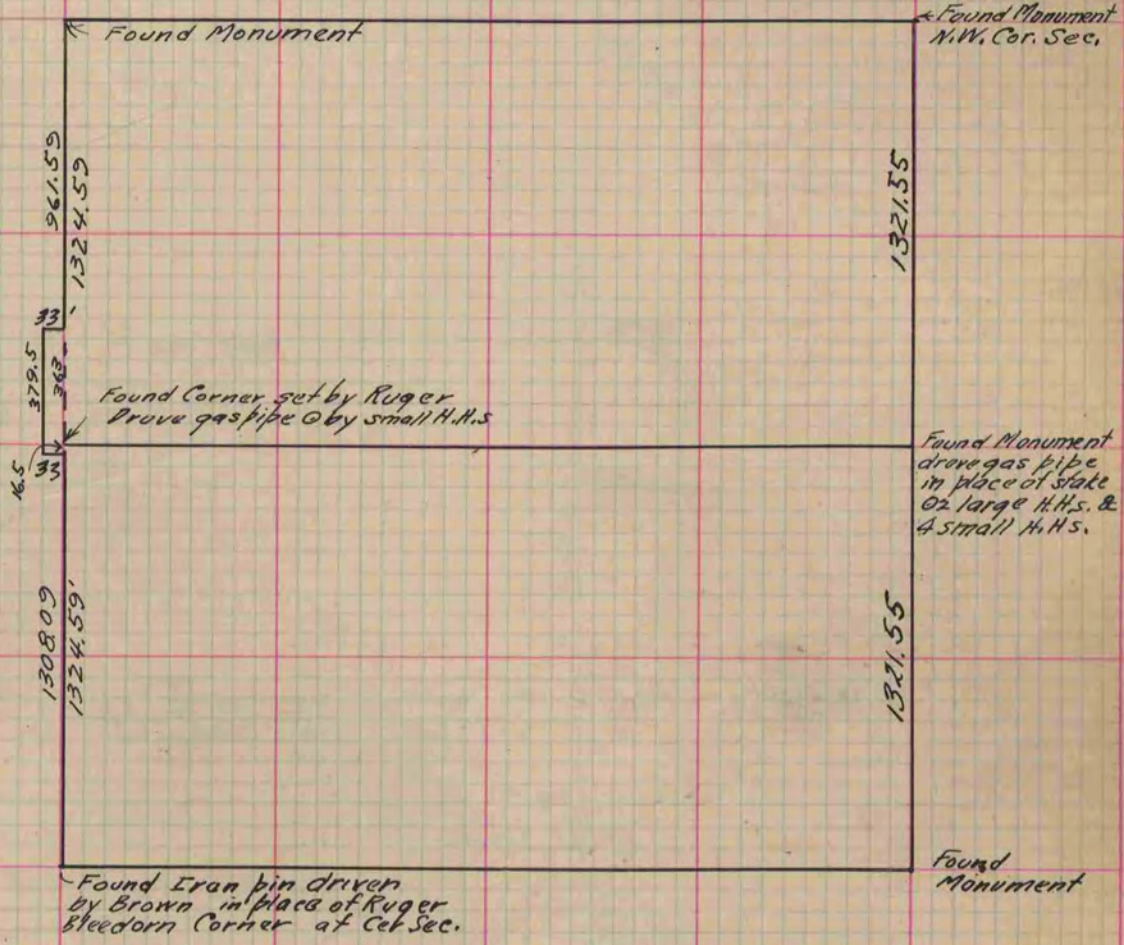 Found Monument
Found Monument
N.W. Cor. Sec.
961.59
1324.59
1321.55
33'
379.5
363
Found Corner set by Ruger
Drove gas pipe ⊙ by small H.H.s
16.5
33
Found Monument
drove gas pipe
in place of stake
⊙2 large H.H.s. &
4 small H.H.s.
1308.09
1324.59'
1321.55
Found Iron pin driven
by Brown in place of Ruger
Bleedorn Corner at Cet Sec.
Found
Monument